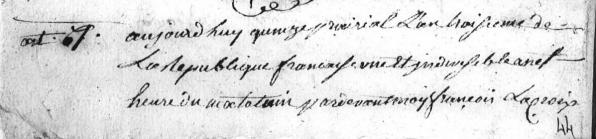 art. 37. aujourd huy quinze prairial L'an troisieme de
La Republique francaise une et indivisible a neuf
heure du matin pardevant moy françois Lacroix
44